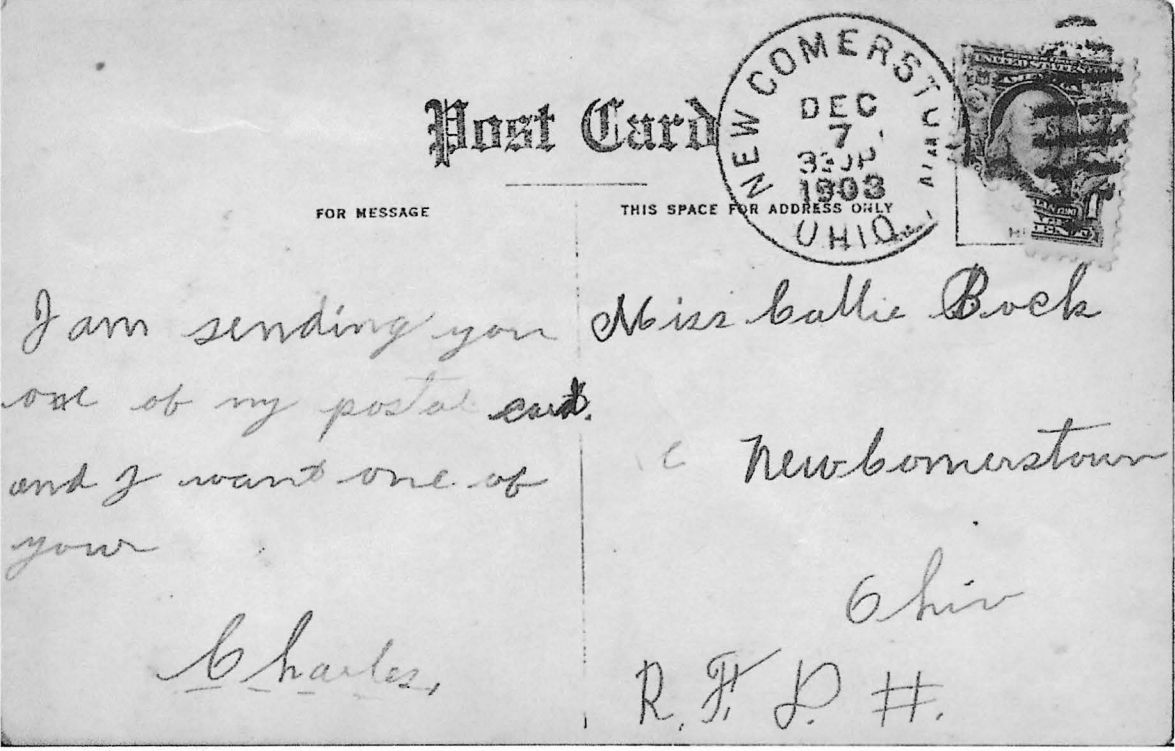 Post Card
NEW COMERSTOWN
DEC
7
1903
OHIO
FOR MESSAGE
THIS SPACE FOR ADDRESS ONLY
I am sending you
one of my postal card.
and I want one of
your
Charles,
Miss Callie Bock
New Comerstown
Ohio
R. F. D. #.